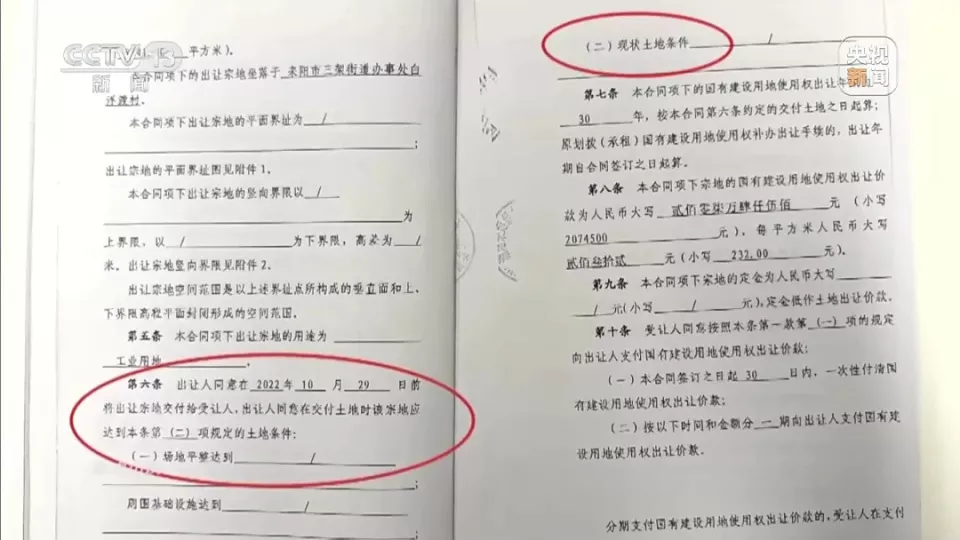 CCTV 13
新闻
央视
新闻
平方米)。
本合同项下的出让宗地坐落于 耒阳市三架街道办事处白
洋渡村.
本合同项下出让宗地的平面界址为 /
;
出让宗地的平面界址图见附件1.
本合同项下出让宗地的竖向界限以 /
为
上界限,以 / 为下界限,高差为 /
米。出让宗地竖向界限见附件2.
出让宗地空间范围是以上述界址点所构成的垂直面和上、
下界限高程平面封闭形成的空间范围。
第五条 本合同项下出让宗地的用途为
工业用地 .
第六条 出让人同意在 2022 年 10 月 29 日前
将出让宗地交付给受让人,出让人同意在交付土地时该宗地应
达到本条第 (二) 项规定的土地条件:
(一)场地平整达到 /
;
周围基础设施达到 /
;
(二)现状土地条件 /
第七条 本合同项下的国有建设用地使用权出让年
30 年,按本合同第六条约定的交付土地之日起算;
原划拨(承租)国有建设用地使用权补办出让手续的,出让年
期自合同签订之日起算。
第八条 本合同项下宗地的国有建设用地使用权出让价
款为人民币大写 贰佰零柒万肆仟伍佰 元(小写
2074500 元),每平方米人民币大写
贰佰叁拾贰 元(小写 232.00 元)。
第九条 本合同项下宗地的定金为人民币大写
/ 元(小写 / 元),定金抵作土地出让价款。
第十条 受让人同意按照本条第一款第 (一) 项的规定
向出让人支付国有建设用地使用权出让价款:
(一)本合同签订之日起 30 日内,一次性付清国
有建设用地使用权出让价款;
(二)按以下时间和金额分 一 期向出让人支付国有建
设用地使用权出让价款.
分期支付国有建设用地使用权出让价款的,受让人在支付